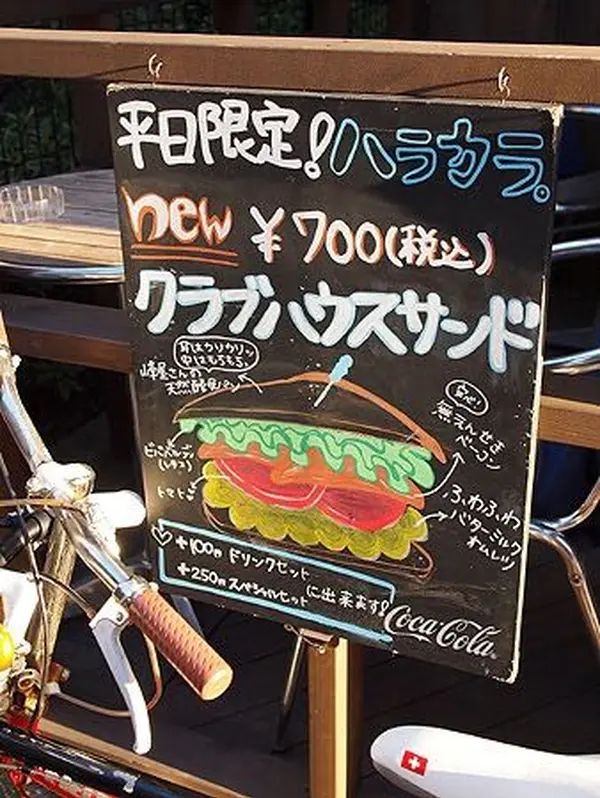 平日限定!ハラカラ。
new ¥700(税込)
クラブハウスサンド
耳はカリカリッ
中はもちもち。
峰屋さんの
天然酵母パン
安心!
無えんせき
ベーコン
(レタス)
トマト
ふわふわ
バターミルク
オムレツ
+100円 ドリンクセット
+250円 スペシャルセット
に出来ます!
Coca-Cola